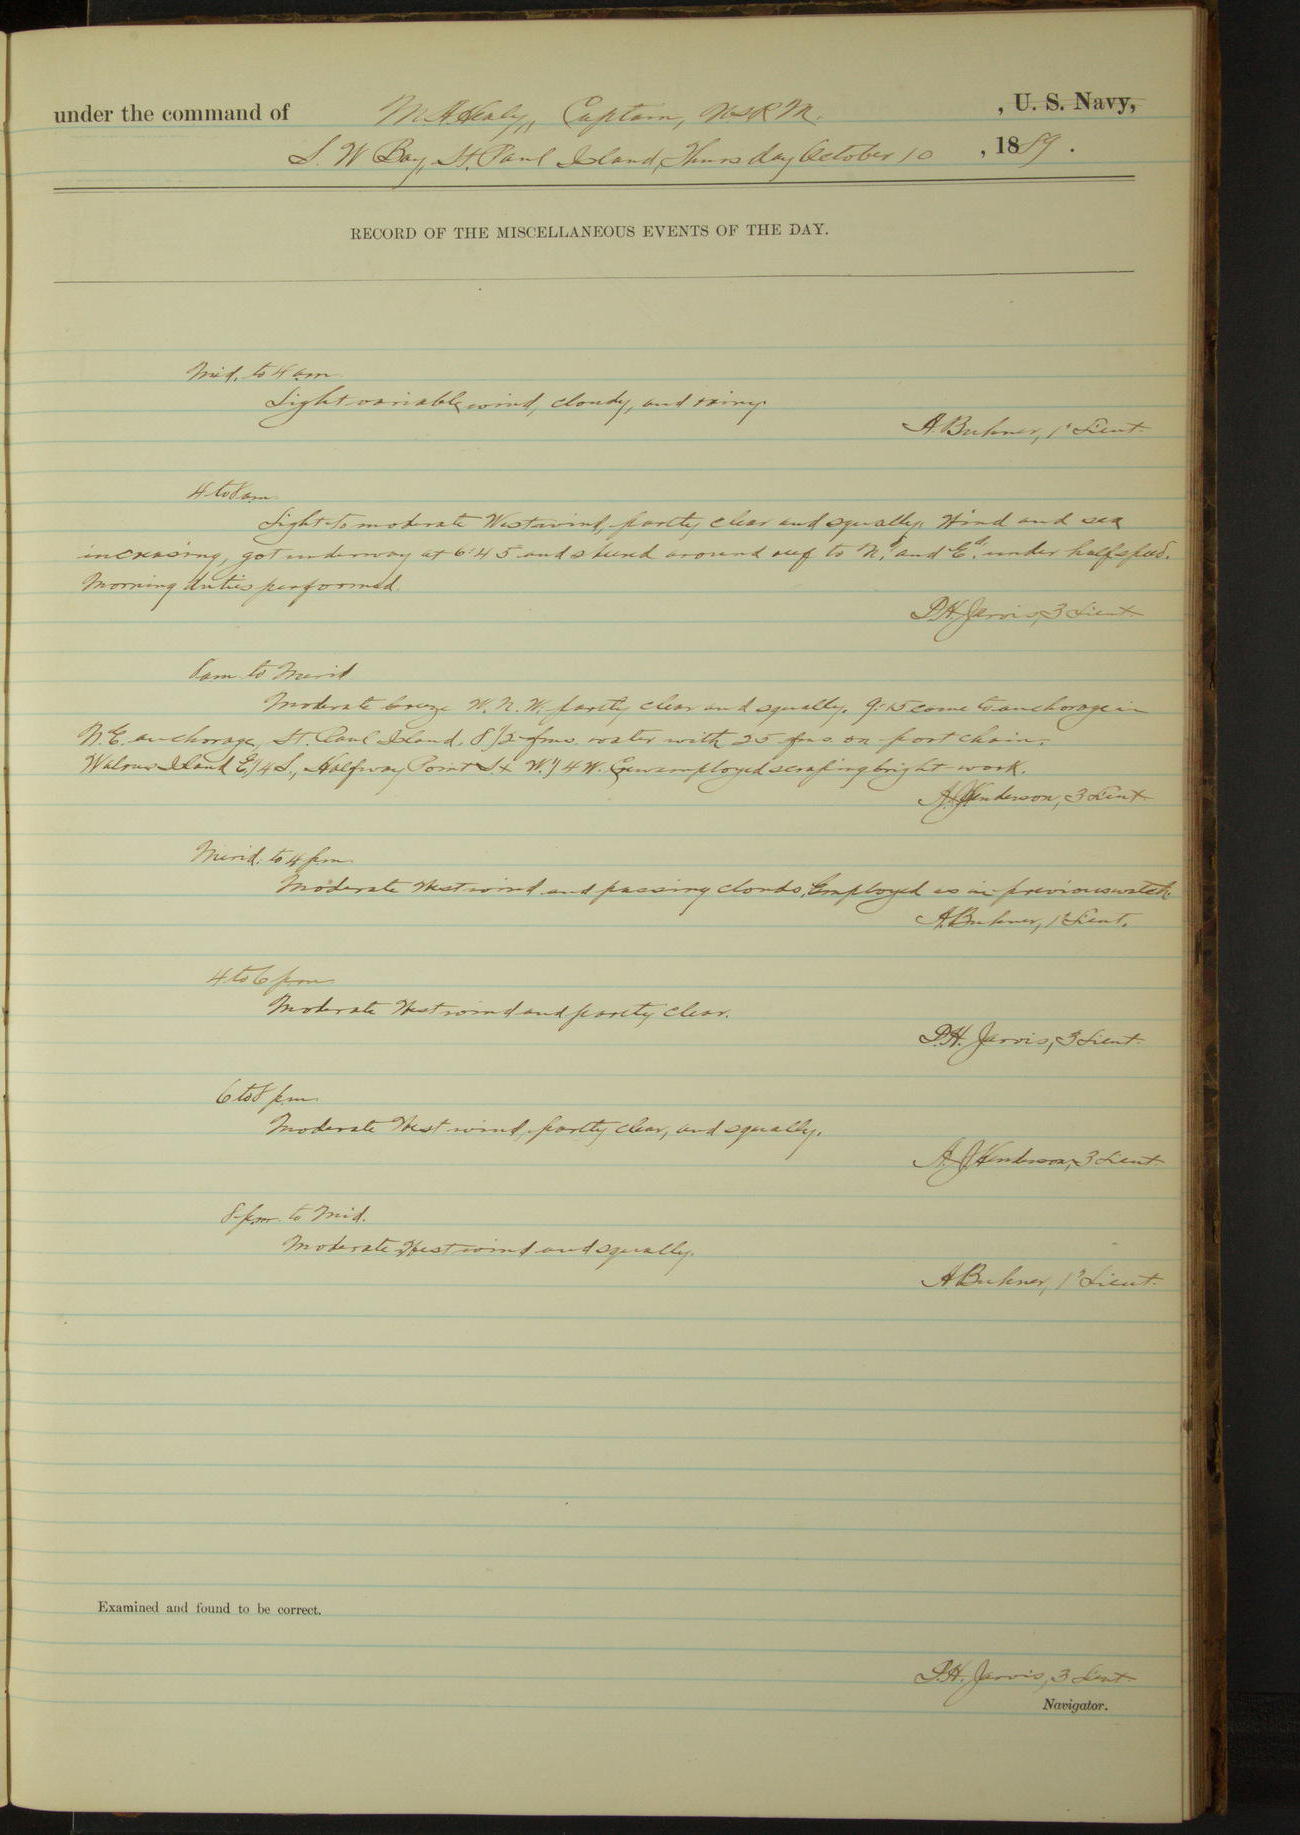 under the command of M. A. Healy, Captain, U.S.R.M. , U. S. Navy,
S. W. Bay, St. Paul Island, Thursday October 10 , 1889 .
RECORD OF THE MISCELLANEOUS EVENTS OF THE DAY.
Mid. to 4 am
Light variable wind, cloudy, and rainy.
A. Buhner, 1st Lieut.
4 to 8 am
Light to moderate West wind, partly clear and squally. Wind and sea
increasing, got underway at 6:45 and stood around reef to N.d and E.d under half speed.
Morning duties performed.
D. H. Jarvis, 3 Lieut.
8 am to Merid
Moderate breeze W. N. W. partly clear and squally. 9:15 came to anchorage in
N. E. anchorage, St. Paul Island, 8 1/2 fms. water with 25 fms. on port chain.
Walrus Island E 1/4 S., Halfway Point S x W. 1/4 W. Crew employed scraping bright-work.
A. J. Henderson, 3 Lieut
Merid. to 4 pm
Moderate West wind and passing clouds, Employed as in previous watch.
A. Buhner, 1st Lieut.
4 to 6 pm
Moderate West wind and partly clear.
D. H. Jarvis, 3 Lieut.
6 to 8 pm
Moderate West wind, partly clear, and squally.
A. J. Henderson, 3 Lieut
8 pm to Mid.
Moderate West wind and squally.
A. Buhner, 1st Lieut.
Examined and found to be correct.
D. H. Jarvis, 3 Lieut
Navigator.